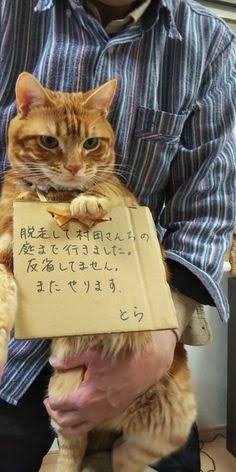 脱走して村田さんちの
庭まで行きました。
反省してません。
またやります
とら